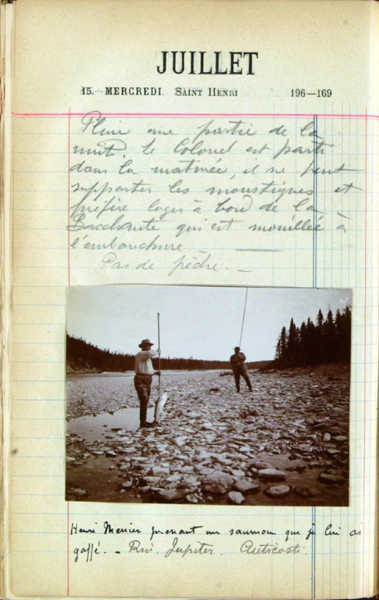 JUILLET
15. MERCREDI. SAINT HENRI 196—169
Pluie une partie de la
nuit. Le Colonel est parti
dans la matinée, il ne peut
supporter les moustiques et
préfère loger à bord de la
Bacchante qui est mouillée à
l'embouchure
Pas de pêche. —
Henri Menier prenant un saumon que je lui ai
gaffé. — Riv. Jupiter. Anticosti.